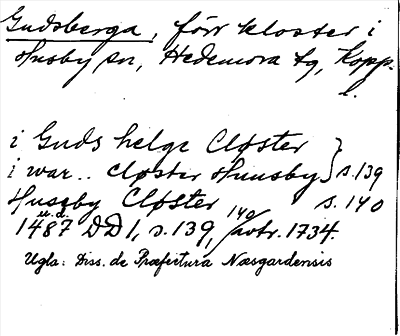 Gudsberga, förr kloster i
Husby sn, Hedemora tg, Kopp.
l.
i Guds helge Cløster } s. 139
i war.. Cløster Huusby
Huseby Cløster s. 140
u.d.
1487 DD 1, s. 139, 140, /avtr. 1734.
Ugla: Diss. de Præfectura Næsgardensis